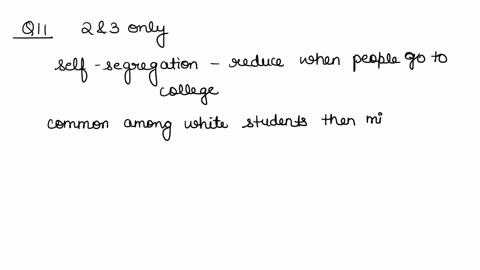 Q11 2&3 only
self-segregation - reduce when people go to
college
common among white students then mi